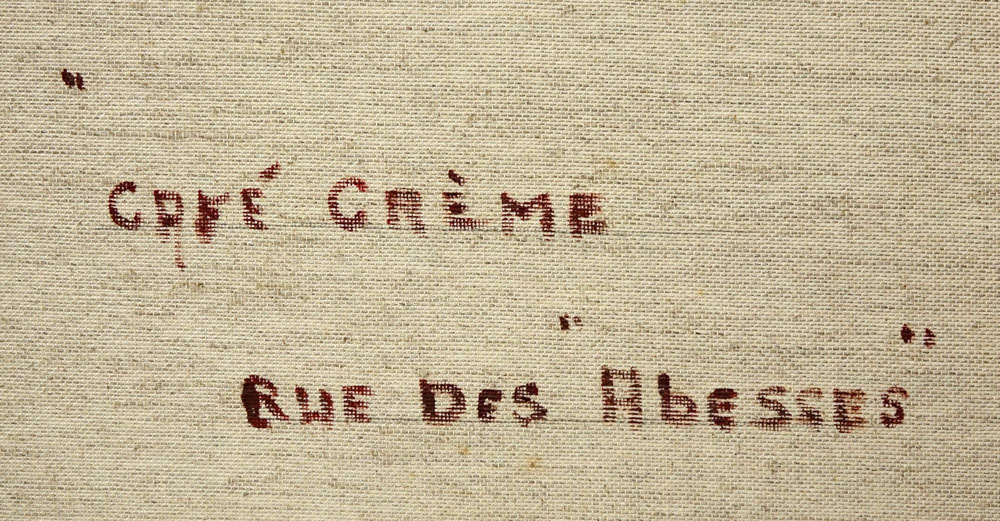 " CAFÉ CRÈME
RUE DES "Abesses"